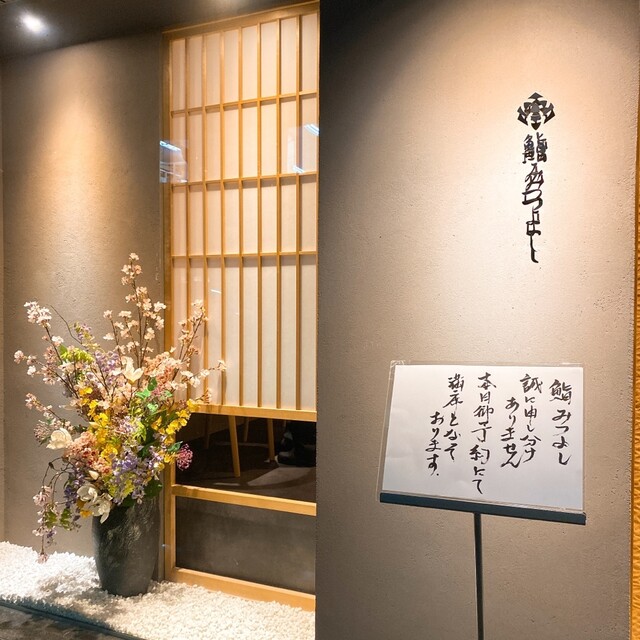 鮨みつよし
鮨みつよし
誠に申し分け
ありません
本日御予約にて
満床となって
おります。